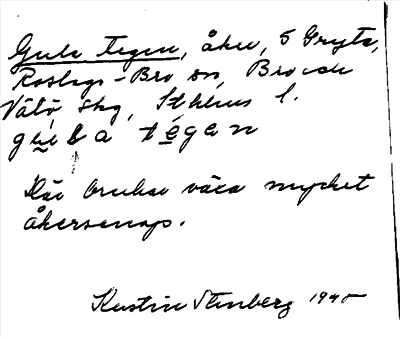 Gula Tegen, åker, S Gryta,
Roslags-Bro sn, Bro och
Vätö skg, Sthlms l.
gula tegan
Här brukar växa mycket
åkersenap.
Kustin Stenberg 1940